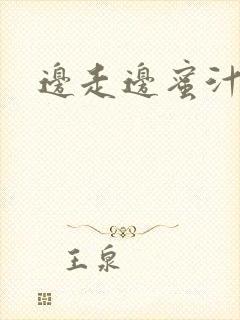 邊走邊蜜汁
王泉